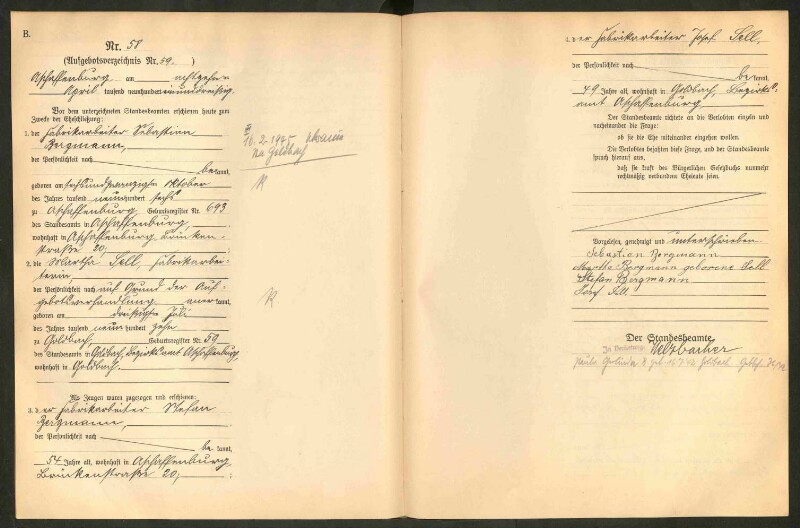 B.
Nr. 58
(Aufgebotsverzeichnis Nr. 59.)
Aschaffenburg am achtzehn
April tausend neunhundert einunddreißig.
Vor dem unterzeichneten Standesbeamten erschienen heute zum
Zwecke der Eheschließung:
1. der Fabrikarbeiter Sebastian
Bergmann,
der Persönlichkeit nach
be kannt,
geboren am sechsundzwanzigste Oktober
des Jahres tausend neunhundert sechs
zu Aschaffenburg, Geburtsregister Nr. 693
des Standesamts in Aschaffenburg,
wohnhaft in Aschaffenburg, Brücken-
straße 20;
2. die Martha Sell, Fabrikarbei-
terin
der Persönlichkeit nach auf Grund der Auf-
gebotsverhandlung anerkannt,
geboren am dreißigste Juli
des Jahres tausend neunhundert zehn
zu Goldbach, Geburtsregister Nr. 59
des Standesamts in Goldbach, Bezirksamt Aschaffenburg,
wohnhaft in Goldbach.
Als Zeugen waren zugezogen und erschienen:
3. der Fabrikarbeiter Stefan
Bergmann,
der Persönlichkeit nach
be kannt,
54 Jahre alt, wohnhaft in Aschaffenburg,
Brückenstraße 20;
10.2.1945
Goldbach
4. der Fabrikarbeiter Josef Sell,
der Persönlichkeit nach be kannt,
49 Jahre alt, wohnhaft in Goldbach, Bezirks-
amt Aschaffenburg.
Der Standesbeamte richtete an die Verlobten einzeln und
nacheinander die Frage:
ob sie die Ehe miteinander eingehen wollen.
Die Verlobten bejahten diese Frage, und der Standesbeamte
sprach hierauf aus,
daß sie kraft des Bürgerlichen Gesetzbuchs nunmehr
rechtmäßig verbundene Eheleute seien.
Vorgelesen, genehmigt und unterschrieben
Sebastian Bergmann
Bergmann geborene Sell
Stefan Bergmann
Josef Sell.
Der Standesbeamte
In Vertretung: Welzbacher